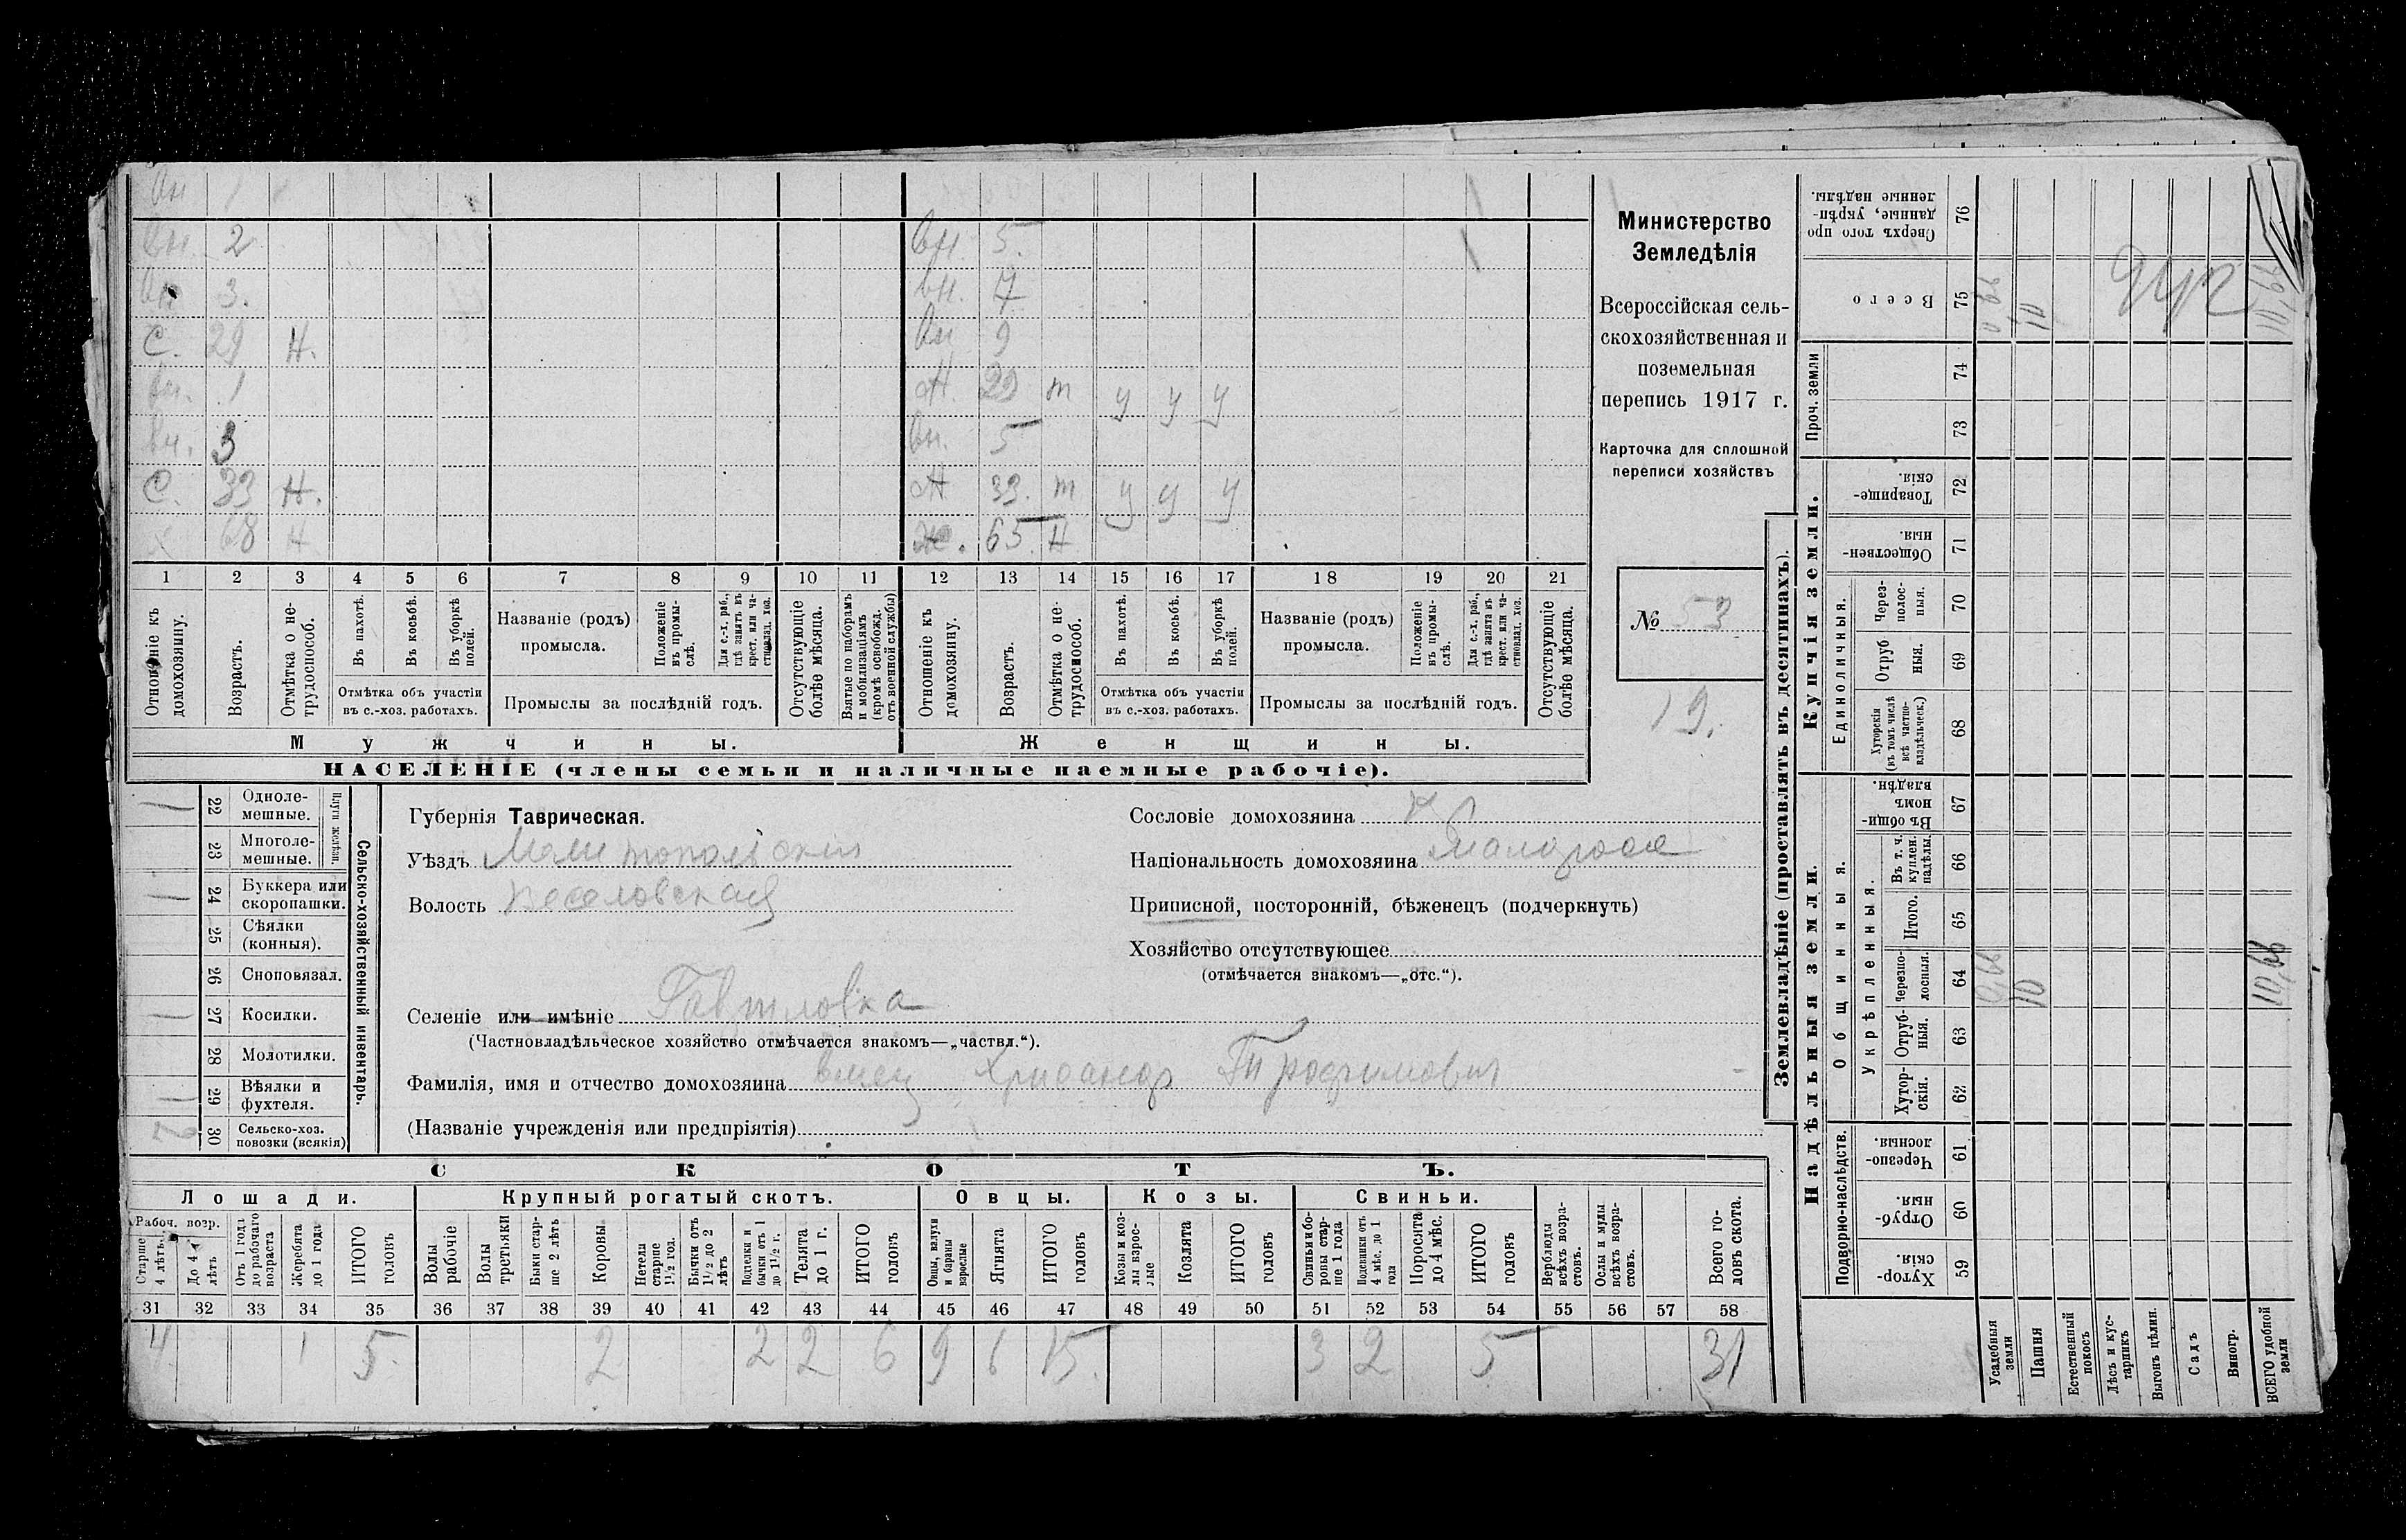 вн 1
вн. 2 вн. 5.
вн 3. вн. 7
С. 29 Н. вн 9
вн. 1 Ж. 29 т у у у
вн. 3 вн. 5
С. 33 Н. Ж 33. т у у у
х 68 Н Ж. 65 Н
1 2 3 4 5 6 7 8 9 10 11 12 13 14 15 16 17 18 19 20 21
Отношеніе къ домохозяину.
Возрастъ.
Отмѣтка о нетрудоспособ.
Въ пахотѣ.
Въ косьбѣ.
Въ уборкѣ полей.
Отмѣтка объ участіи
въ с.-хоз. работахъ.
Названіе (родъ)
промысла.
Положеніе въ промыслѣ.
Для с.-х. раб., гдѣ занятъ въ крест. или частновлад. хоз.
Промыслы за послѣдній годъ.
Отсутствующіе болѣе мѣсяца.
Взятые по наборамъ и мобилизаціямъ (кромѣ освобожд. отъ военной службы)
Отношеніе къ домохозяину.
Возрастъ.
Отмѣтка о нетрудоспособ.
Въ пахотѣ.
Въ косьбѣ.
Въ уборкѣ полей.
Отмѣтка объ участіи
въ с.-хоз. работахъ.
Названіе (родъ)
промысла.
Положеніе въ промыслѣ.
Для с.-х. раб., гдѣ занята въ крест. или частновлад. хоз.
Промыслы за послѣдній годъ.
Отсутствующіе болѣе мѣсяца.
Мужчины. Женщины.
НАСЕЛЕНІЕ (члены семьи и наличные наемные рабочіе).
Министерство
Земледѣлія
Всероссійская сель-
скохозяйственная и
поземельная
перепись 1917 г.
Карточка для сплошной
переписи хозяйствъ
№ 53
19.
Сельско-хозяйственный инвентарь.
Плуги желѣзн.
1 22 Одноле-
мешные.
23 Многоле-
мешные.
1 24 Буккера или
скоропашки.
25 Сѣялки
(конныя).
26 Сноповязал.
1 27 Косилки.
28 Молотилки.
1 29 Вѣялки и
фухтеля.
2 30 Сельско-хоз.
повозки (всякія)
Губернія Таврическая.
Уѣздъ Мелитопольскій
Волость Веселовская
Селеніе или имѣніе
(Частновладѣльческое хозяйство отмѣчается знакомъ—„частвл.“).
Фамилія, имя и отчество домохозяина Хрисанор Трофимович
(Названіе учрежденія или предпріятія)
Сословіе домохозяина кр
Національность домохозяина Малоросс
Приписной, посторонній, бѣженецъ (подчеркнуть)
Хозяйство отсутствующее
(отмѣчается знакомъ—„отс.“).
СКОТЪ.
Лошади. Крупный рогатый скотъ. Овцы. Козы. Свиньи.
Рабоч. возр.
Старше 4 лѣтъ.
До 4 лѣтъ
Отъ 1 года до рабочаго возраста
Жеребята до 1 года
ИТОГО головъ
Волы рабочіе
Волы третьяки
Быки старше 2 лѣтъ
Коровы
Нетели старше 1½ год.
Бычки отъ 1½ до 2 лѣтъ
Подтелки и бычки отъ 1 до 1½ г.
Телята до 1 г.
ИТОГО головъ
Овцы, валухи и бараны взрослые
Ягнята
ИТОГО головъ
Козы и козлы взрослые
Козлята
ИТОГО головъ
Свиньи и боровы старше 1 года
Подсвинки отъ 4 мѣс. до 1 года
Поросята до 4 мѣс.
ИТОГО головъ
Верблюды всѣхъ возрастовъ.
Ослы и мулы всѣхъ возрастовъ.
Всего головъ скота.
31 32 33 34 35 36 37 38 39 40 41 42 43 44 45 46 47 48 49 50 51 52 53 54 55 56 57 58
4 1 5 2 2 2 6 9 6 15 3 2 5 31
Землевладѣніе (проставлять въ десятинахъ).
Надѣльныя земли. Купчія земли.
Подворно-наслѣдств. Общинныя. Единоличныя. Проч. земли
Укрѣпленныя.
59 Хуторскія.
60 Отрубныя.
61 Черезполосныя.
62 Хуторскія.
63 Отрубныя.
64 Черезполосныя.
65 Итого.
66 Въ т. ч. куплен. надѣлы.
67 Въ общинномъ владѣн.
68 Хуторскія (въ томъ числѣ всѣ частновладѣльческ.)
69 Отрубныя.
70 Черезполосныя.
71 Общественныя.
72 Товарищескія.
73
74
75 Всего
76 Сверхъ того проданные, укрѣпленные надѣлы.
Усадебныя земли 0,68
Пашня 10 10
Естественный покосъ
Лѣсъ и кустарникъ
Выгонъ цѣлин.
Садъ
Виногр.
ВСЕГО удобной земли 10,68